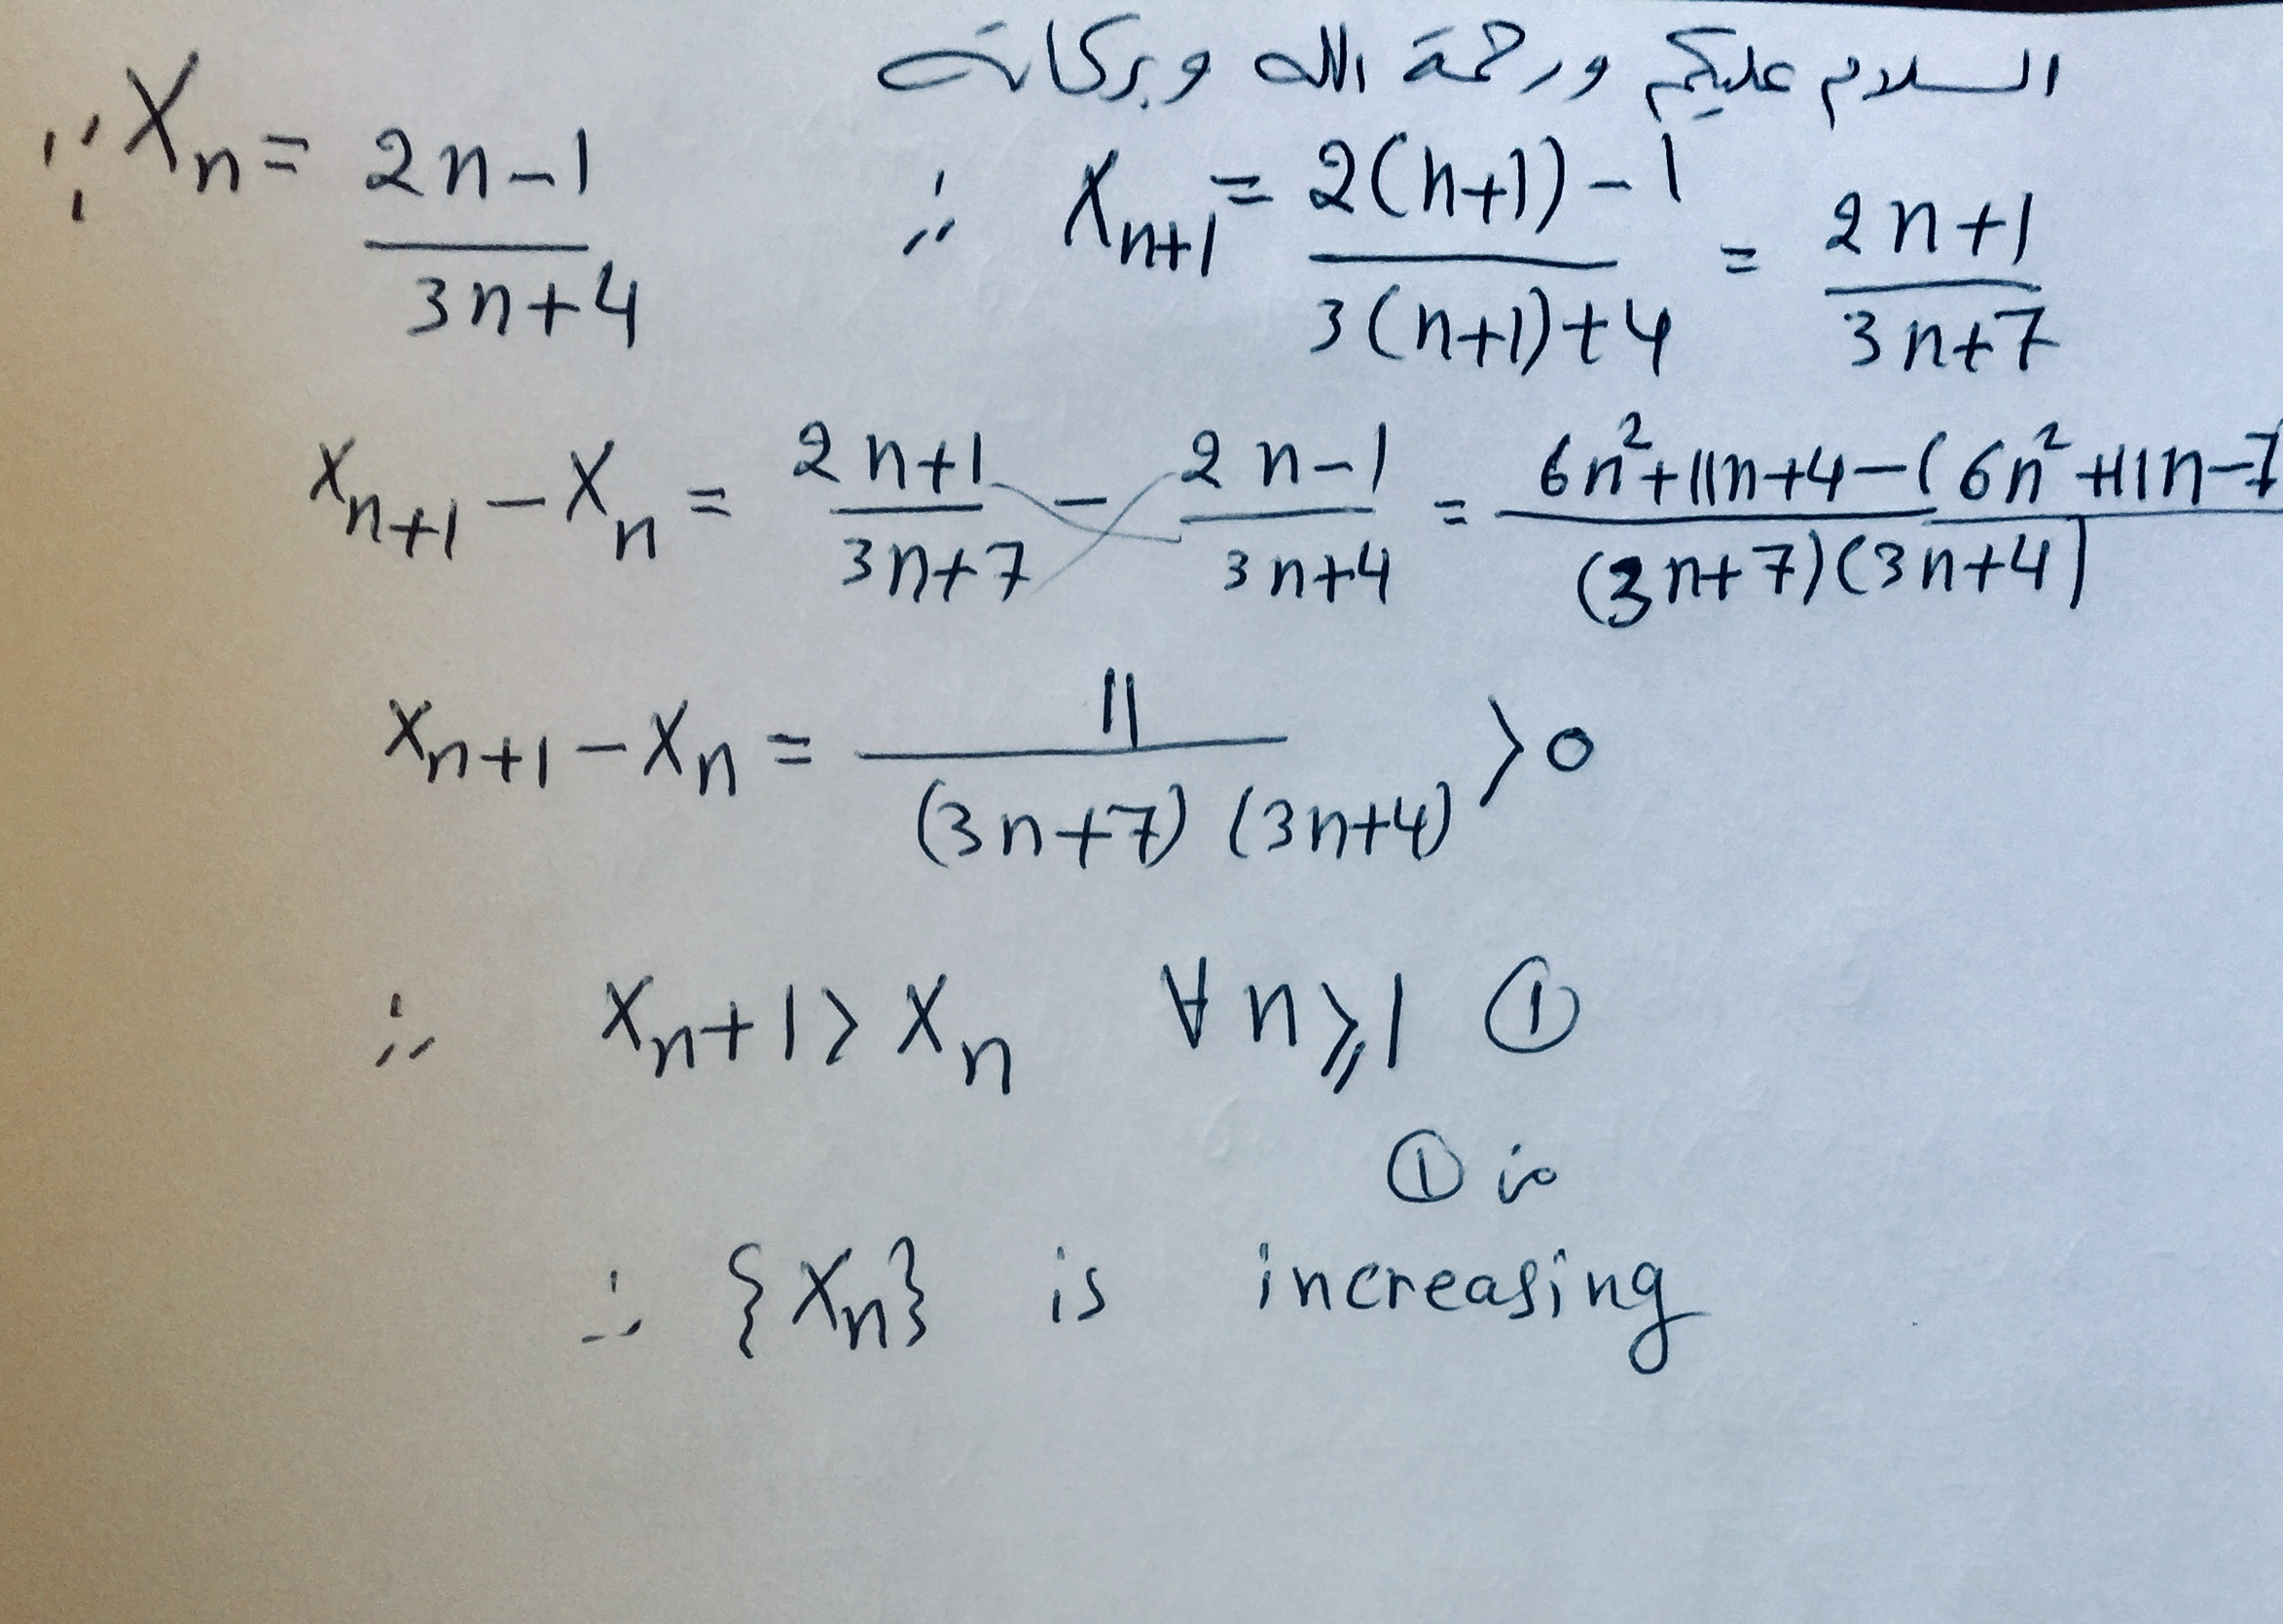 السلام عليكم ورحمة الله وبركاته
∵ Xn = (2n-1)/(3n+4) ∴ Xn+1 = (2(n+1)-1)/(3(n+1)+4) = (2n+1)/(3n+7)
Xn+1 - Xn = (2n+1)/(3n+7) - (2n-1)/(3n+4) = (6n²+11n+4-(6n²+11n-7)/((3n+7)(3n+4)
Xn+1 - Xn = 11/((3n+7)(3n+4)) > 0
∴ Xn+1 > Xn ∀ n ⩾ 1 ①
① من
∴ {Xn} is increasing